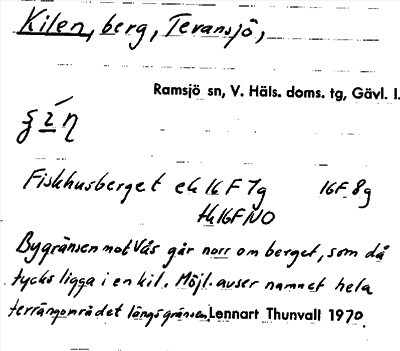 Kilen, berg, Tevansjö,
Ramsjö sn, V. Häls. doms. tg, Gävl. l.
Fiskhusberget ek 16F 7g 16F 8g
tk 16F NO
Bygränsen mot Vås går norr om berget, som då
tycks ligga i en kil. Möjl. avser namnet hela
terrängområdet längs gränsen. Lennart Thunvall 1970.